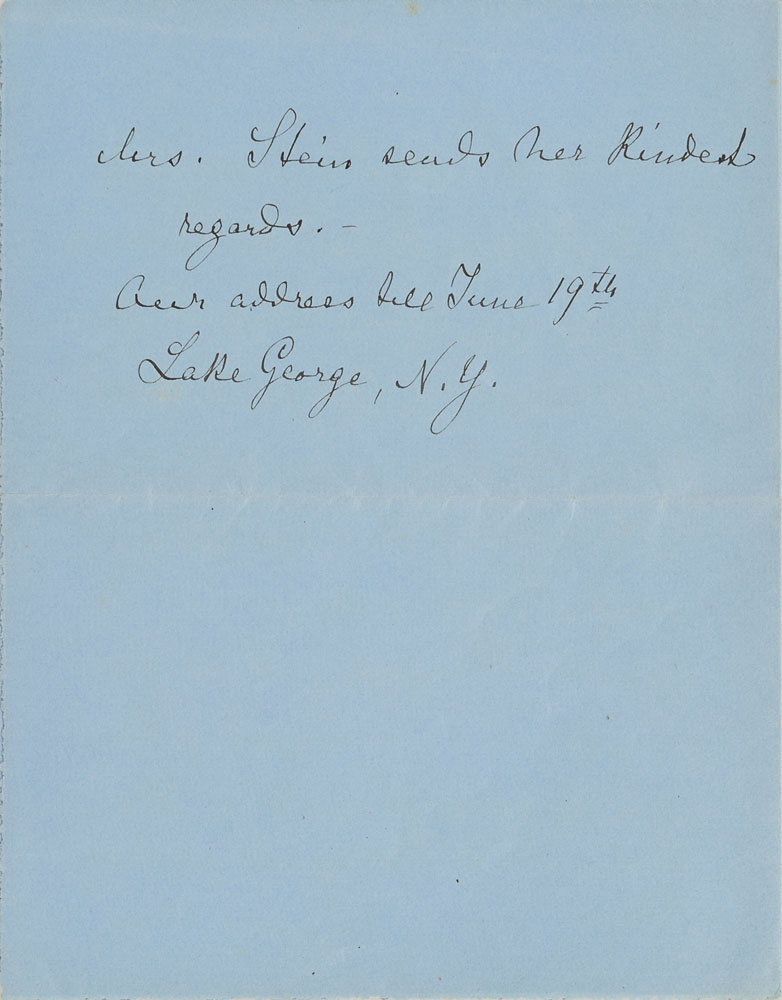 Mrs. Stein sends her Kindest
regards. -
Our address till June 19th
Lake George, N.Y.